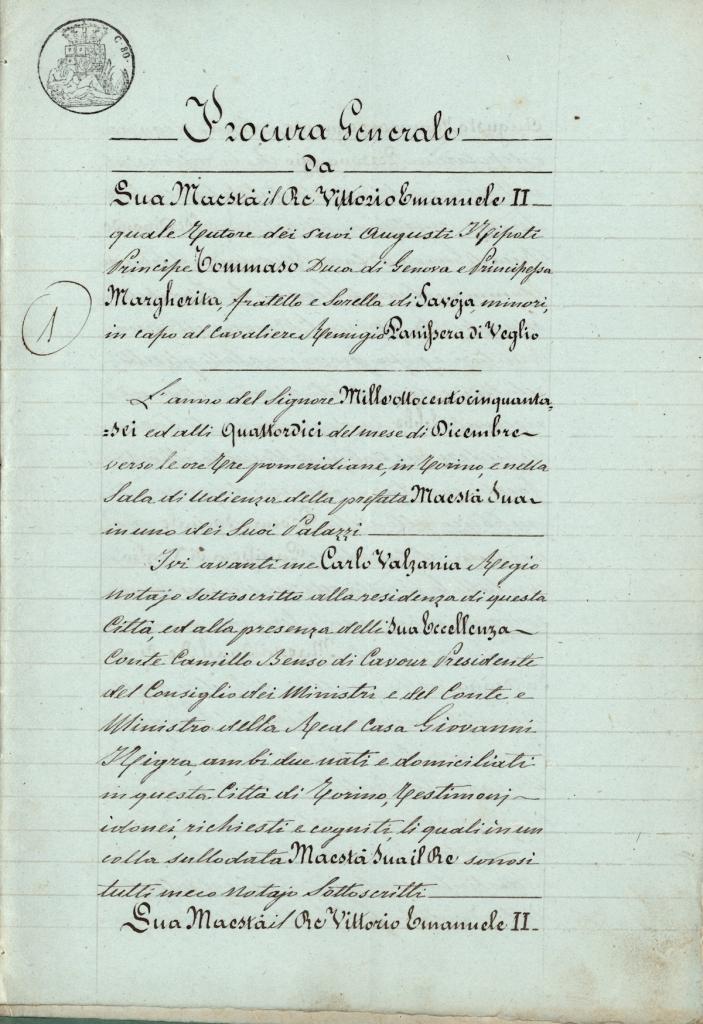 C. 80.
Procura Generale
da
Sua Maestà il Re Vittorio Emanuele II
quale Tutore dei suoi Augusti Nipoti
Principe Tommaso Duca di Genova e Principessa
Margherita, fratello e Sorella di Savoja, minori,
1
in capo al Cavaliere Remigio Panissera di Veglio
L'anno del Signore Mille ottocento cinquanta=
=sei ed alli Quattordici del mese di Dicembre
verso le ore tre pomeridiane, in Torino, e nella
Sala di Udienza della prefata Maestà Sua
in uno dei Suoi Palazzi
Ivi avanti me Carlo Valzania Regio
Notajo sottoscritto alla residenza di questa
Città, ed alla presenza delli Sua Eccellenza
Conte Camillo Benso di Cavour Presidente
del Consiglio dei Ministri e del Conte e
Ministro della Real Casa Giovanni
Nigra, ambidue nati e domiciliati
in questa Città di Torino, Testimonj
idonei, richiesti e cogniti, li quali in un
colla sullodata Maestà Sua il Re sonosi
tutti meco Notajo Sottoscritti
Sua Maestà il Re Vittorio Emanuele II